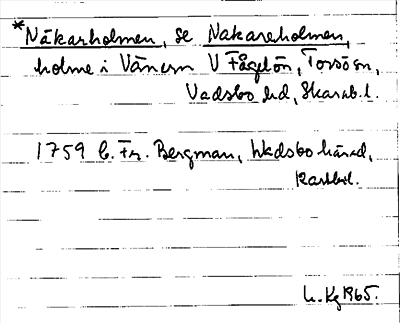 *Näkarholmen, se Nakareholmen,
holme i Vänern V Fågelön, Torsö sn,
Vadsbo hd, Skarab. l.
1759 C. Fr. Bergman, Wadsbo härad,
Kartbil.
L. Kg 1965.